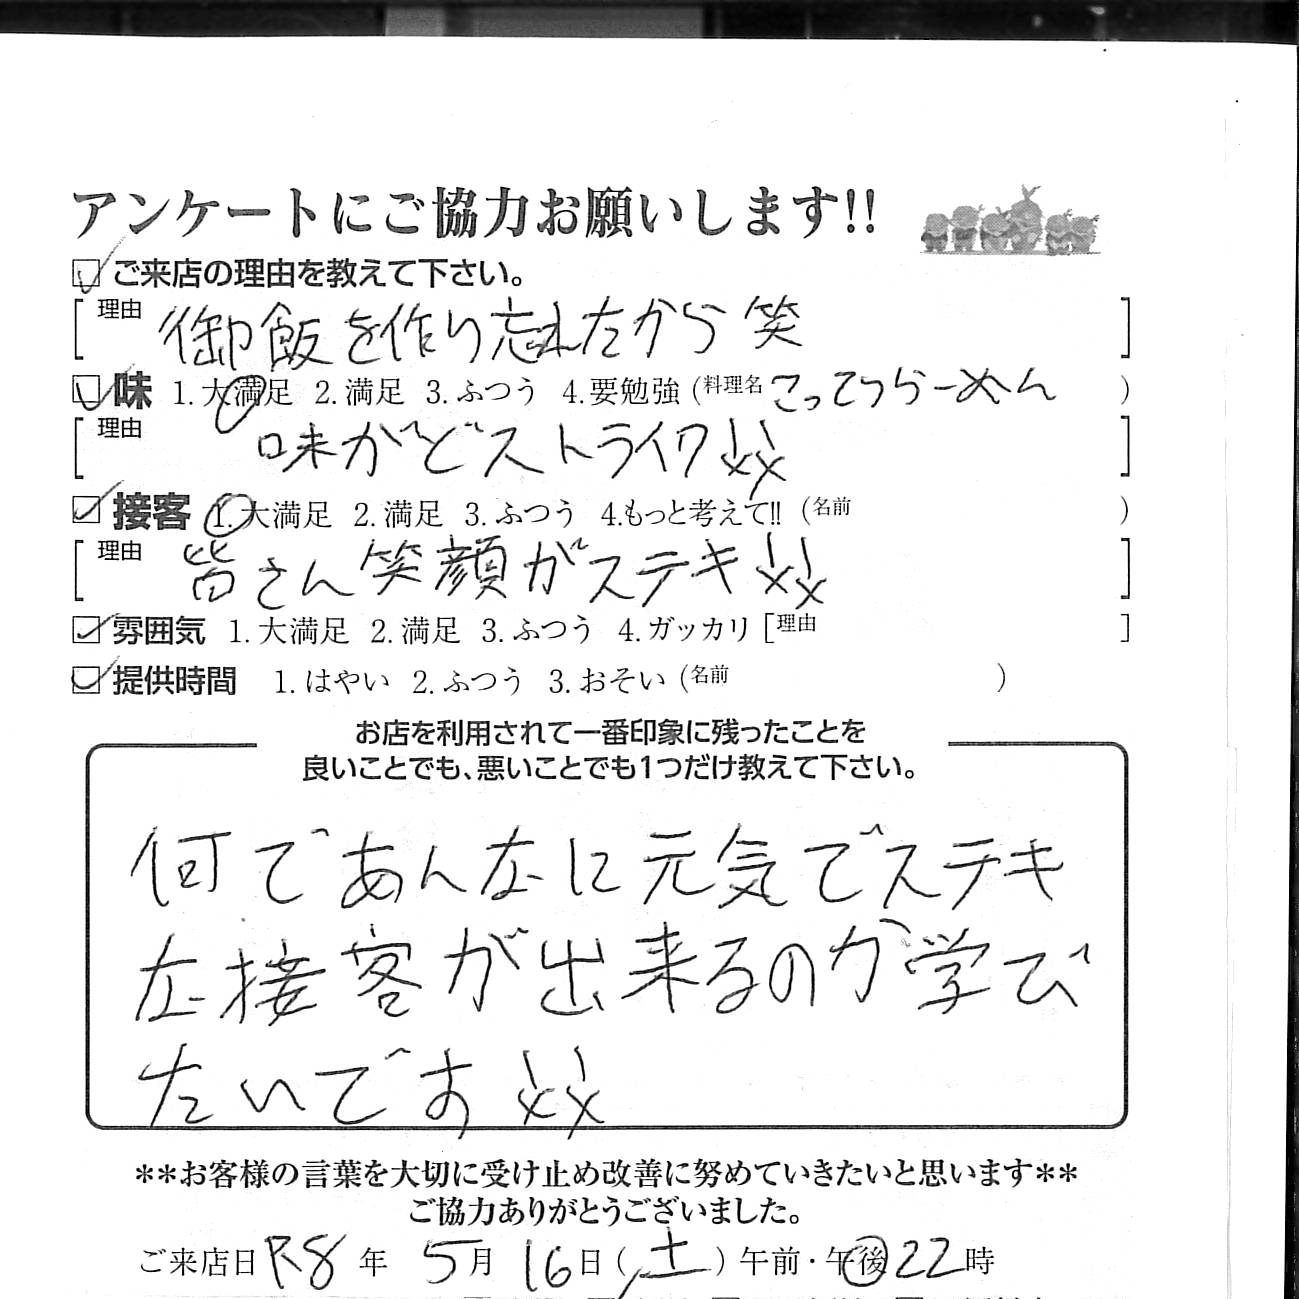 アンケートにご協力お願いします!!
ご来店の理由を教えて下さい。
理由 御飯を作り忘れたから 笑
味 1.大満足 2.満足 3.ふつう 4.要勉強 (料理名 こってりらーめん )
理由 味がどストライク!!
接客 1.大満足 2.満足 3.ふつう 4.もっと考えて!! (名前 )
理由 皆さん笑顔がステキ!!
雰囲気 1.大満足 2.満足 3.ふつう 4.ガッカリ [理由 ]
提供時間 1.はやい 2.ふつう 3.おそい (名前 )
お店を利用されて一番印象に残ったことを
良いことでも、悪いことでも1つだけ教えて下さい。
何であんなに元気でステキ
な接客が出来るのか学び
たいです!!
**お客様の言葉を大切に受け止め改善に努めていきたいと思います**
ご協力ありがとうございました。
ご来店日 R8年 5月 16日(土) 午前・午後 22時